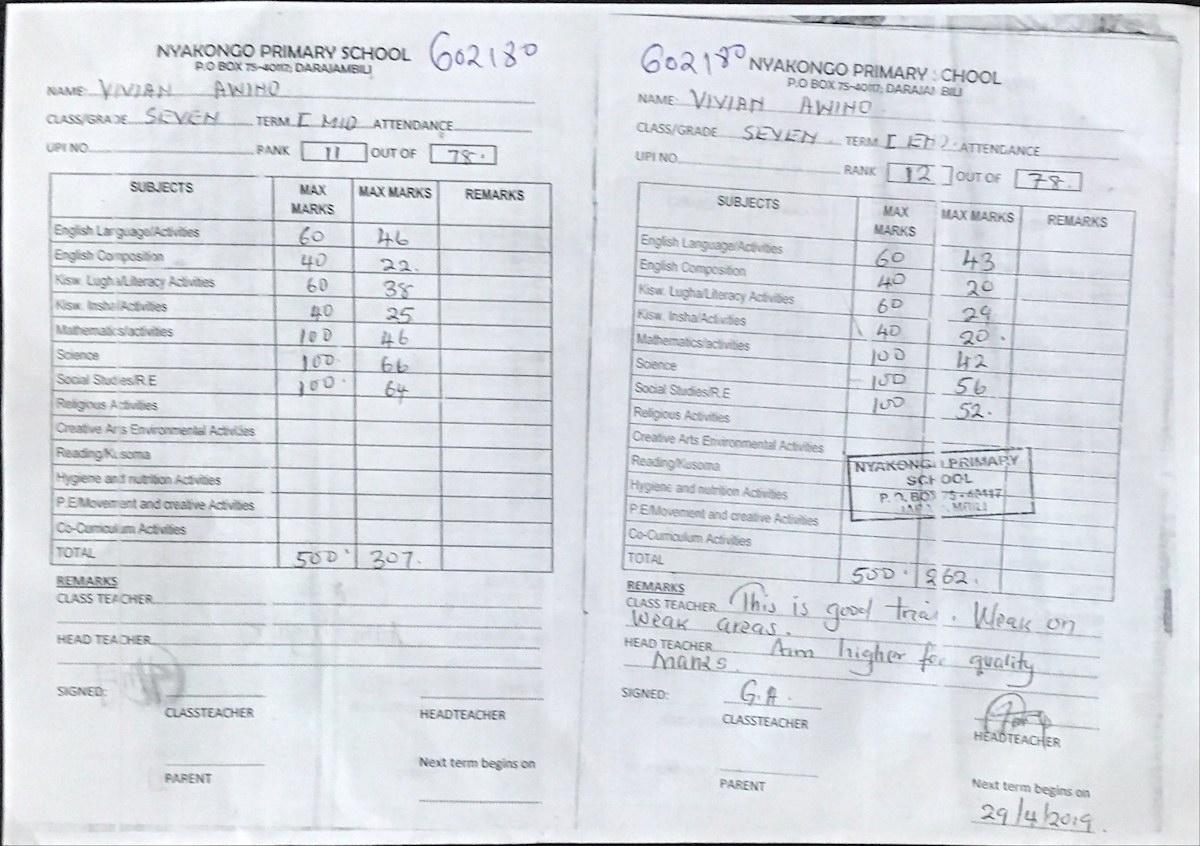 NYAKONGO PRIMARY SCHOOL 602180
P.O BOX 75-40117; DARAJAMBILI
NAME: VIVIAN AWINO
CLASS/GRADE SEVEN TERM I MID ATTENDANCE
UPI NO RANK 11 OUT OF 78.
SUBJECTS MAX MARKS MAX MARKS REMARKS
English Language/Activities 60 46
English Composition 40 22.
Kisw. Lugha/Literacy Activities 60 38
Kisw. Insha/Activities 40 25
Mathematics/activities 100 46
Science 100 66
Social Studies/R.E 100 64
Religious Activities
Creative Arts Environmental Activities
Reading/Kusoma
Hygiene and nutrition Activities
P.E/Movement and creative Activities
Co-Curriculum Activities
TOTAL 500 307.
REMARKS
CLASS TEACHER
HEAD TEACHER
SIGNED:
CLASSTEACHER HEADTEACHER
Next term begins on
PARENT
602180 NYAKONGO PRIMARY SCHOOL
P.O BOX 75-40117; DARAJAMBILI
NAME: VIVIAN AWINO
CLASS/GRADE SEVEN TERM I END. ATTENDANCE
UPI NO RANK 12 OUT OF 78.
SUBJECTS MAX MARKS MAX MARKS REMARKS
English Language/Activities 60 43
English Composition 40 20
Kisw. Lugha/Literacy Activities 60 29
Kisw. Insha/Activities 40 20.
Mathematics/activities 100 42
Science 100 56
Social Studies/R.E 100 52.
Religious Activities
Creative Arts Environmental Activities
Reading/Kusoma
Hygiene and nutrition Activities
P.E/Movement and creative Activities
Co-Curriculum Activities
NYAKONGO PRIMARY
SCHOOL
P. O. BOX 75-40117
TOTAL 500. 262.
REMARKS
CLASS TEACHER This is good trial. Weak on
Weak areas.
HEAD TEACHER Aim higher for quality
Marks
SIGNED: G.A.
CLASSTEACHER HEADTEACHER
PARENT Next term begins on
29/4/2019.